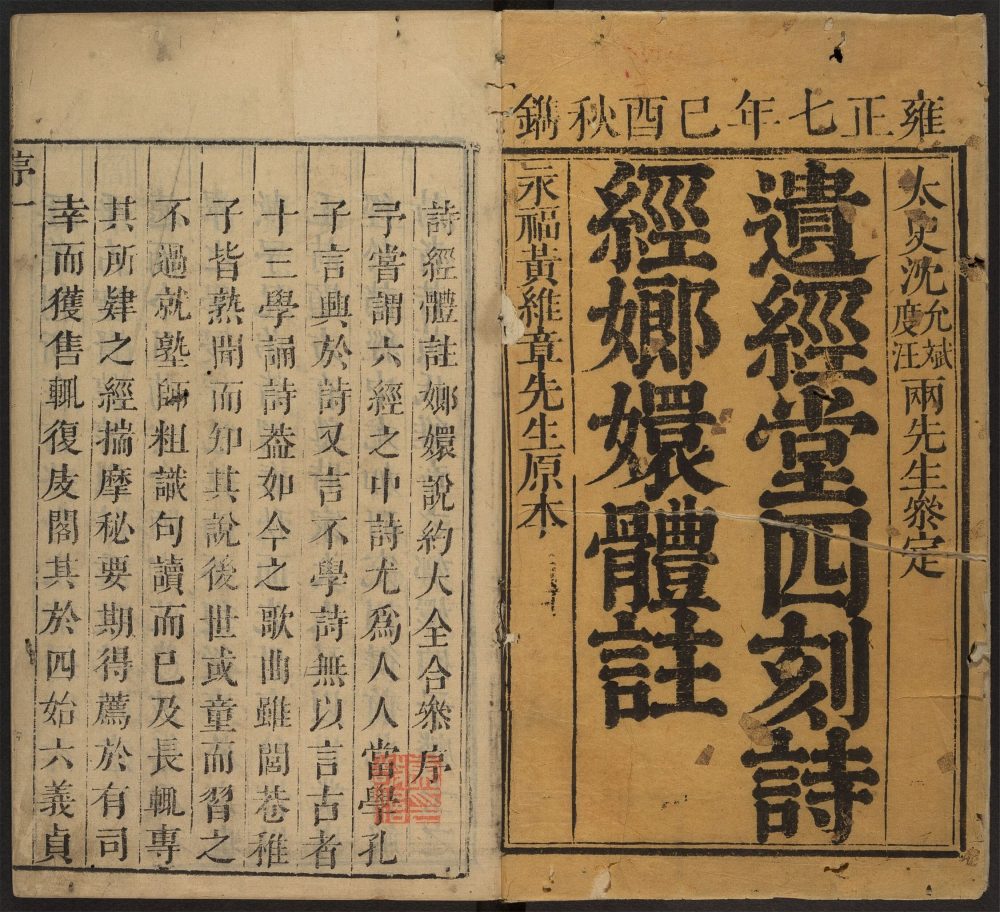 雍正七年巳酉秋鐫
太史沈允斌度汪兩先生叅定
遺經堂四刻詩
經嫏嬛體註
永福黃維章先生原本
詩經體註嫏嬛說約大全合叅序
予嘗謂六經之中詩尤爲人人當學孔
子言興於詩又言不學詩無以言古者
十三學誦詩葢如今之歌曲雖閭巷稚
子皆熟聞而知其說後世或童而習之
不過就塾師粗識句讀而已及長輒專
其所肄之經揣摩秘要期得薦於有司
幸而獲售輒復庋閣其於四始六義貞
序一